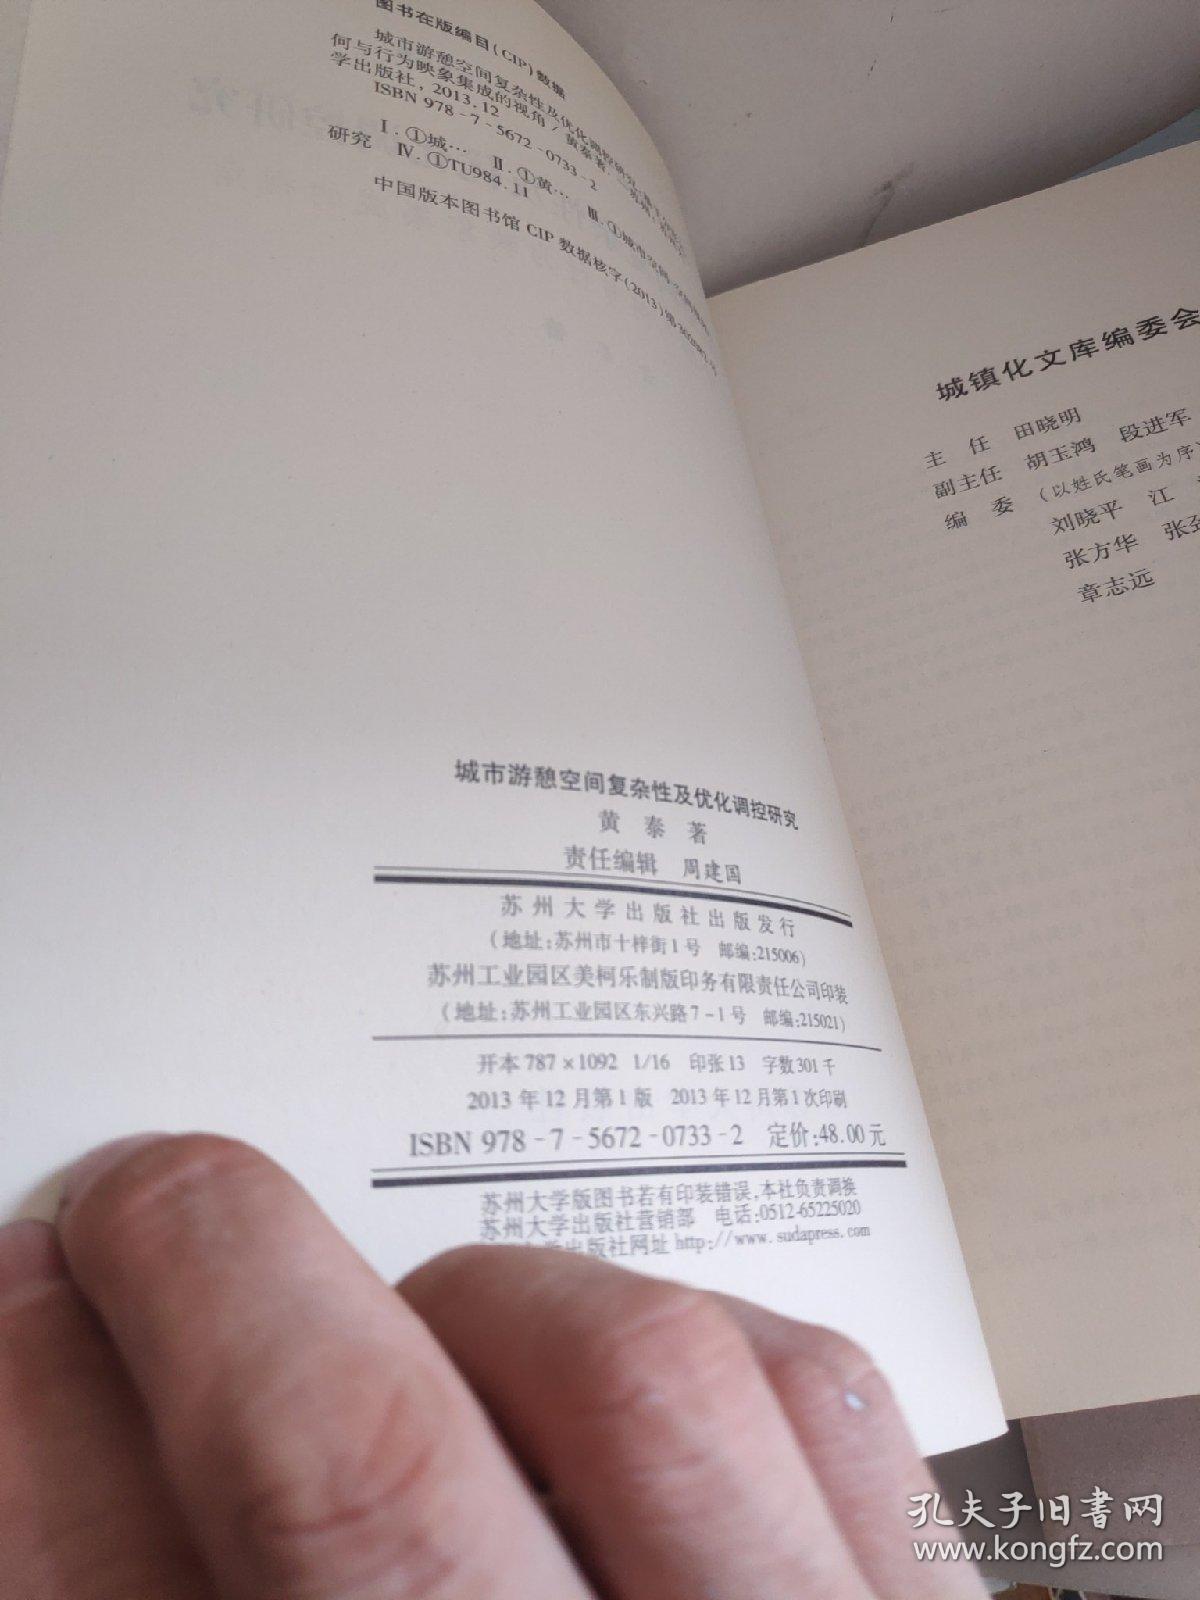 图书在版编目(CIP)数据
城市游憩空间复杂性及优化调控研究
何与行为映象集成的视角/黄泰著.
学出版社，2013.12
ISBN 978-7-5672-0733-2
Ⅰ.①城… Ⅱ.①黄… Ⅲ.①城市空间
研究 Ⅳ.①TU984.11
中国版本图书馆CIP数据核字(2013)第
城市游憩空间复杂性及优化调控研究
黄 泰 著
责任编辑 周建国
苏州大学出版社出版发行
(地址:苏州市十梓街1号 邮编:215006)
苏州工业园区美柯乐制版印务有限责任公司印装
(地址:苏州工业园区东兴路7-1号 邮编:215021)
开本787×1092 1/16 印张13 字数301千
2013年12月第1版 2013年12月第1次印刷
ISBN 978-7-5672-0733-2 定价:48.00元
苏州大学版图书若有印装错误,本社负责调换
苏州大学出版社营销部 电话:0512-65225020
学出版社网址 http://www.sudapress.com
城镇化文库编委会
主 任 田晓明
副主任 胡玉鸿 段进军
编 委 (以姓氏笔画为序)
刘晓平 江
张方华 张
章志远
孔夫子旧书网
www.kongfz.com